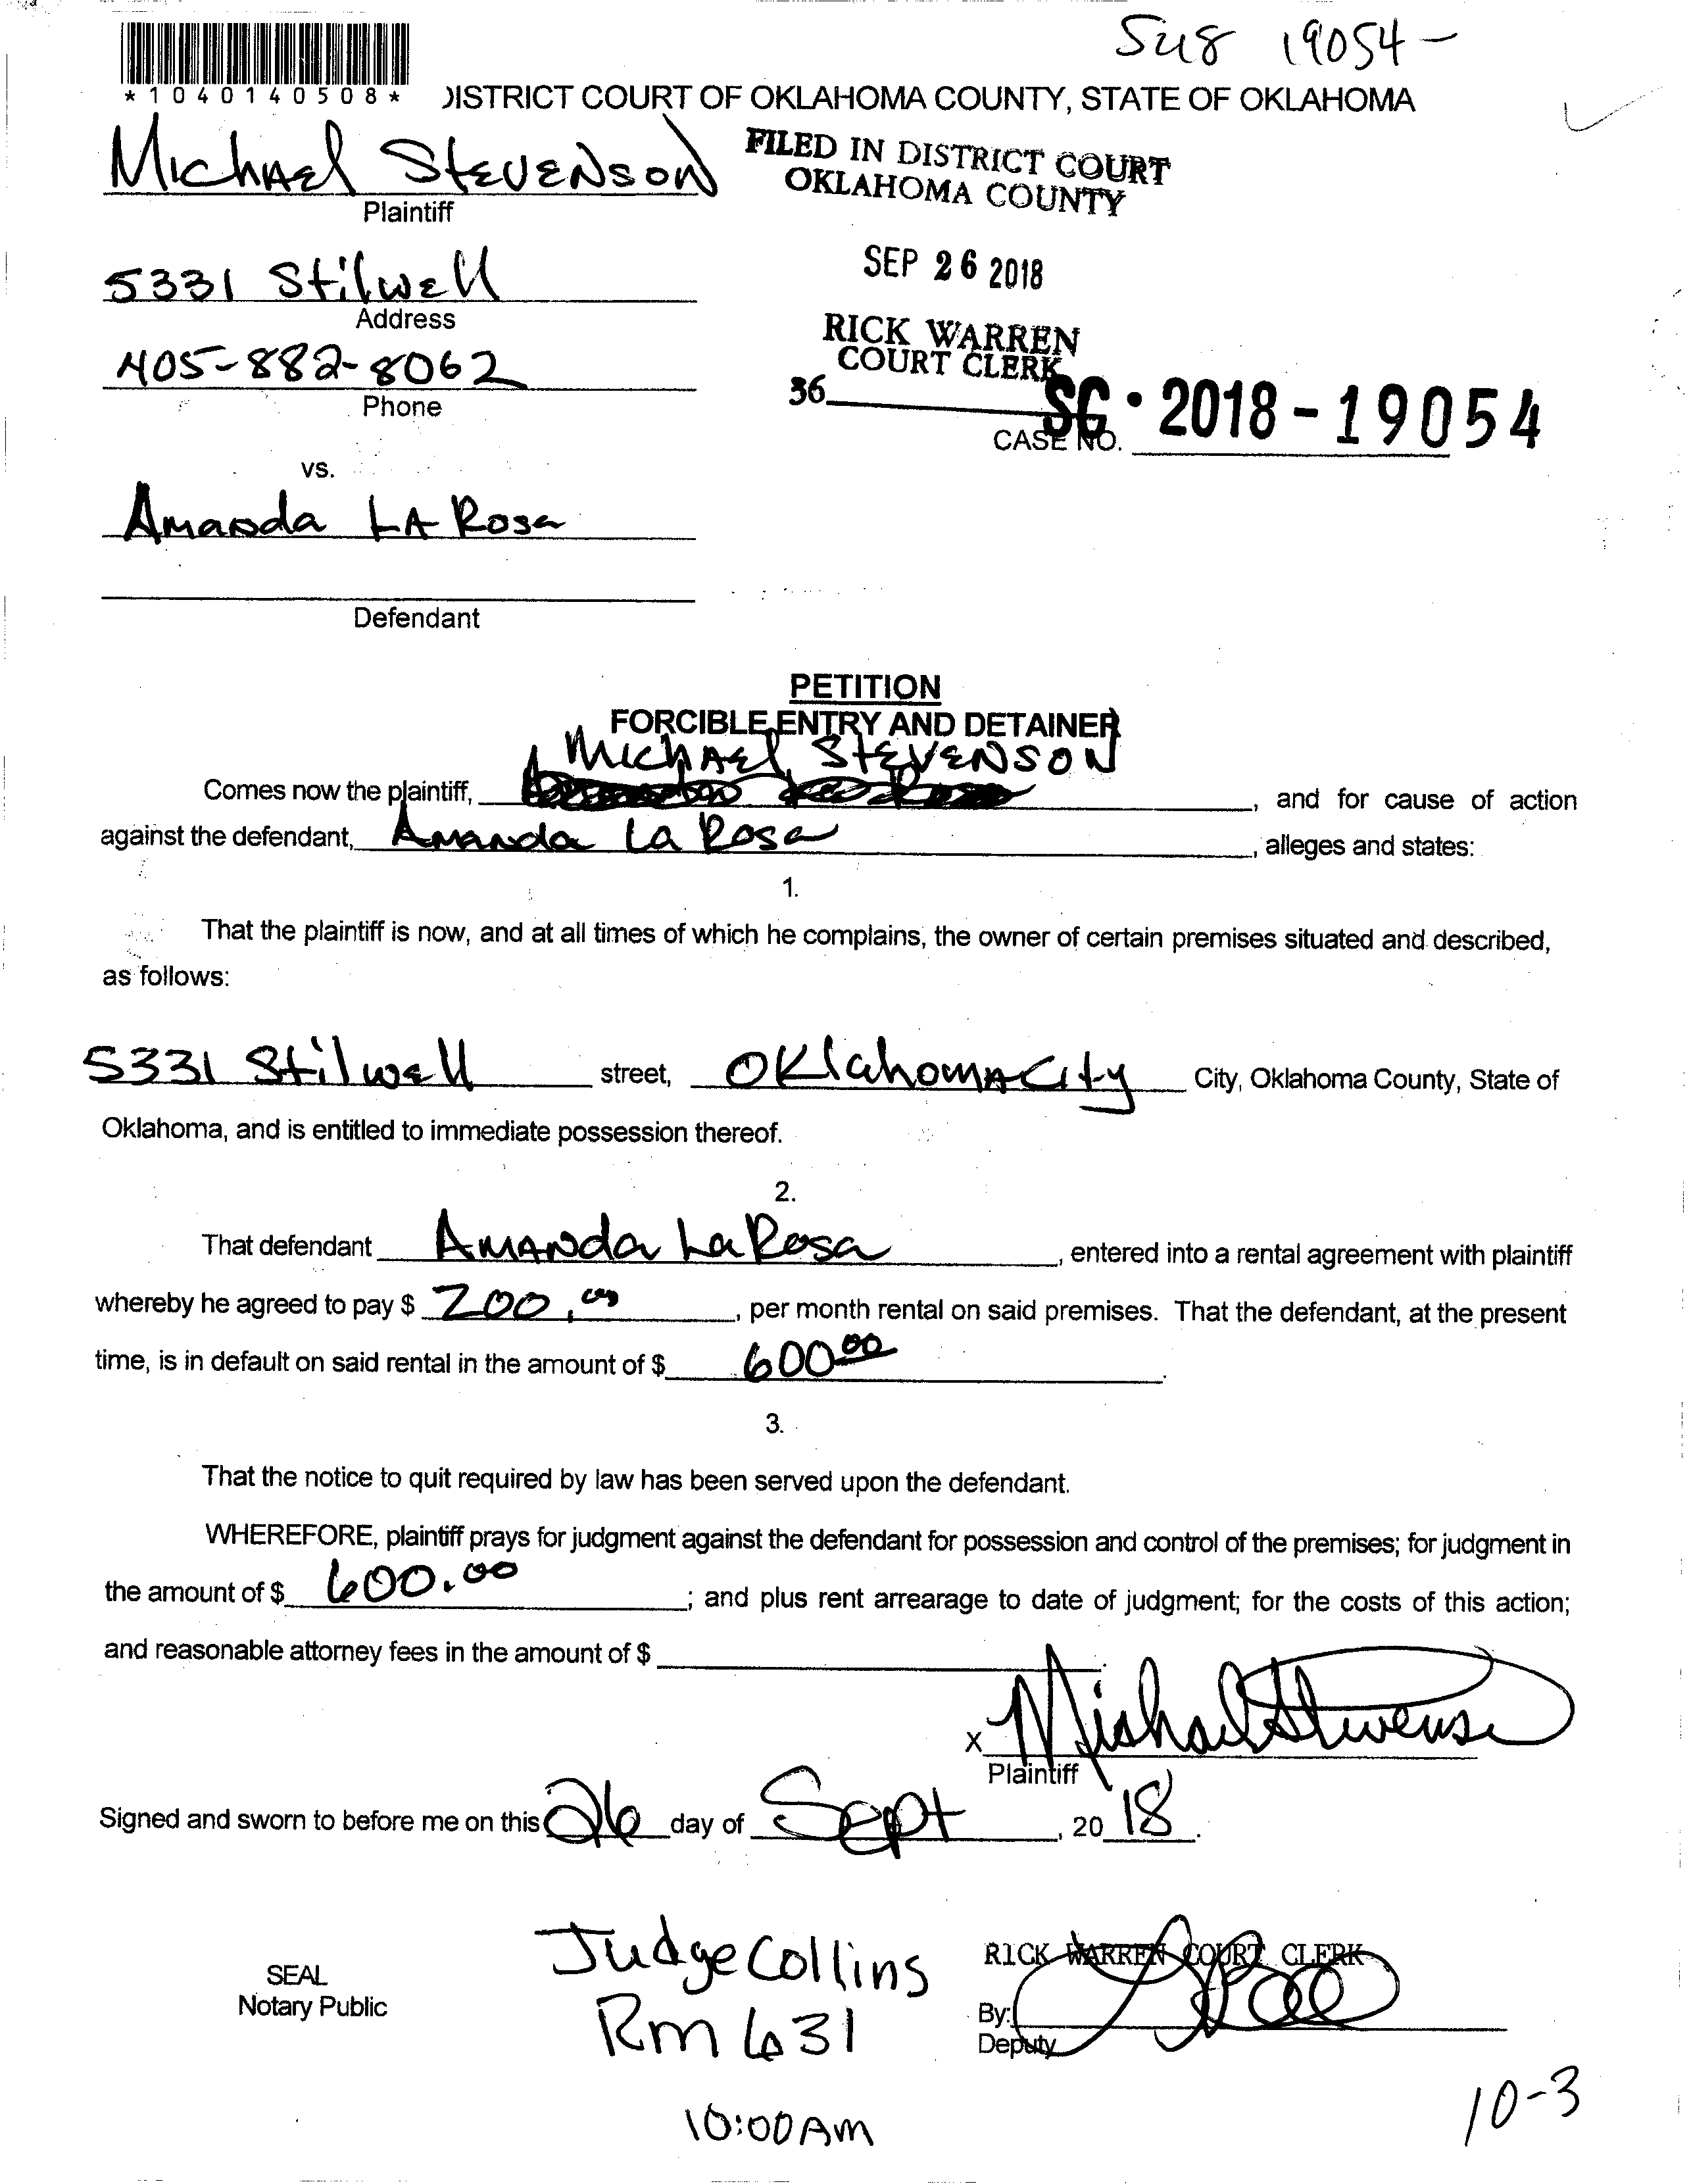 Su8 19054-
*1040140508*
DISTRICT COURT OF OKLAHOMA COUNTY, STATE OF OKLAHOMA
Michael Stevenson
Plaintiff
FILED IN DISTRICT COURT
OKLAHOMA COUNTY
5331 Stilwell
Address
SEP 26 2018
405-882-8062
Phone
RICK WARREN
COURT CLERK
36
CASE NO. SC-2018-19054
vs.
Amanda LA Rosa
Defendant
PETITION
FORCIBLE ENTRY AND DETAINER
Michael Stevenson
Comes now the plaintiff, , and for cause of action
against the defendant, Amanda La Rosa, alleges and states:
1.
That the plaintiff is now, and at all times of which he complains, the owner of certain premises situated and described,
as follows:
5331 Stilwell street, Oklahoma City City, Oklahoma County, State of
Oklahoma, and is entitled to immediate possession thereof.
2.
That defendant Amanda La Rosa, entered into a rental agreement with plaintiff
whereby he agreed to pay $ 200.00, per month rental on said premises. That the defendant, at the present
time, is in default on said rental in the amount of $ 600.00.
3.
That the notice to quit required by law has been served upon the defendant.
WHEREFORE, plaintiff prays for judgment against the defendant for possession and control of the premises; for judgment in
the amount of $ 600.00; and plus rent arrearage to date of judgment; for the costs of this action;
and reasonable attorney fees in the amount of $
x Michael Stevenson
Plaintiff
Signed and sworn to before me on this 26 day of Sept, 2018.
SEAL
Notary Public
Judge Collins
Rm 631
10:00 AM
RICK WARREN COURT CLERK
By:
Deputy
10-3